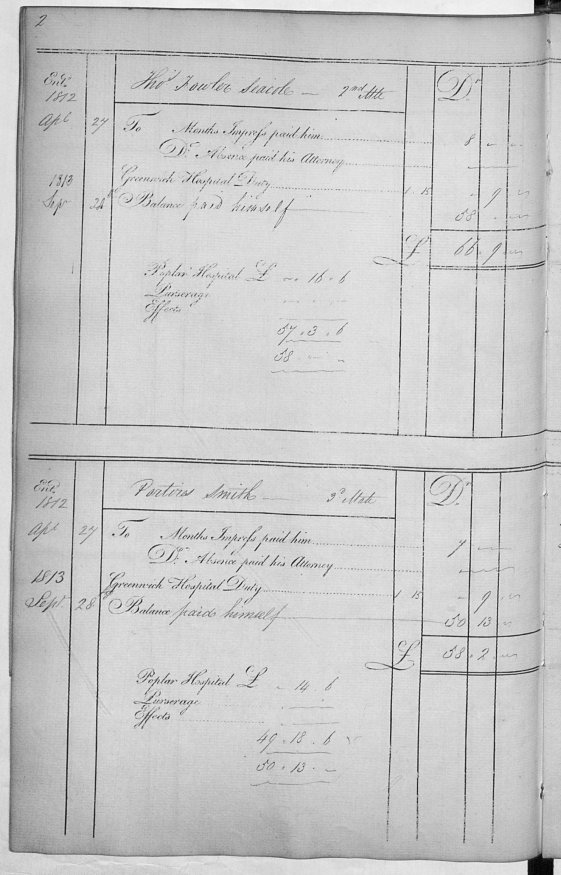 2
Entd. Thos. Fowler 2nd Mate Dr.
1812
Apl 27 To Months Imprefs paid him 8 " "
Do. Absence paid his Attorney
1813 Greenwich Hospital Duty 1 15 " 9 "
Sep 28 Balance paid himself 58 " "
£ 66 " 9 "
Poplar Hospital £ " 16 " 6
Purserage
Effects
57 " 3 " 6
58 " "
Entd. Smith 3d. Mate Dr.
1812
Apl 27 To Months Imprefs paid him 7 "
Do. Absence paid his Attorney
1813 Greenwich Hospital Duty 1 15 " 9 "
Sept. 28 Balance paid himself 50 13 "
£ 58 " 2 "
Poplar Hospital £ " 14 " 6
Purserage
Effects
49 " 18 " 6
50 " 13 "